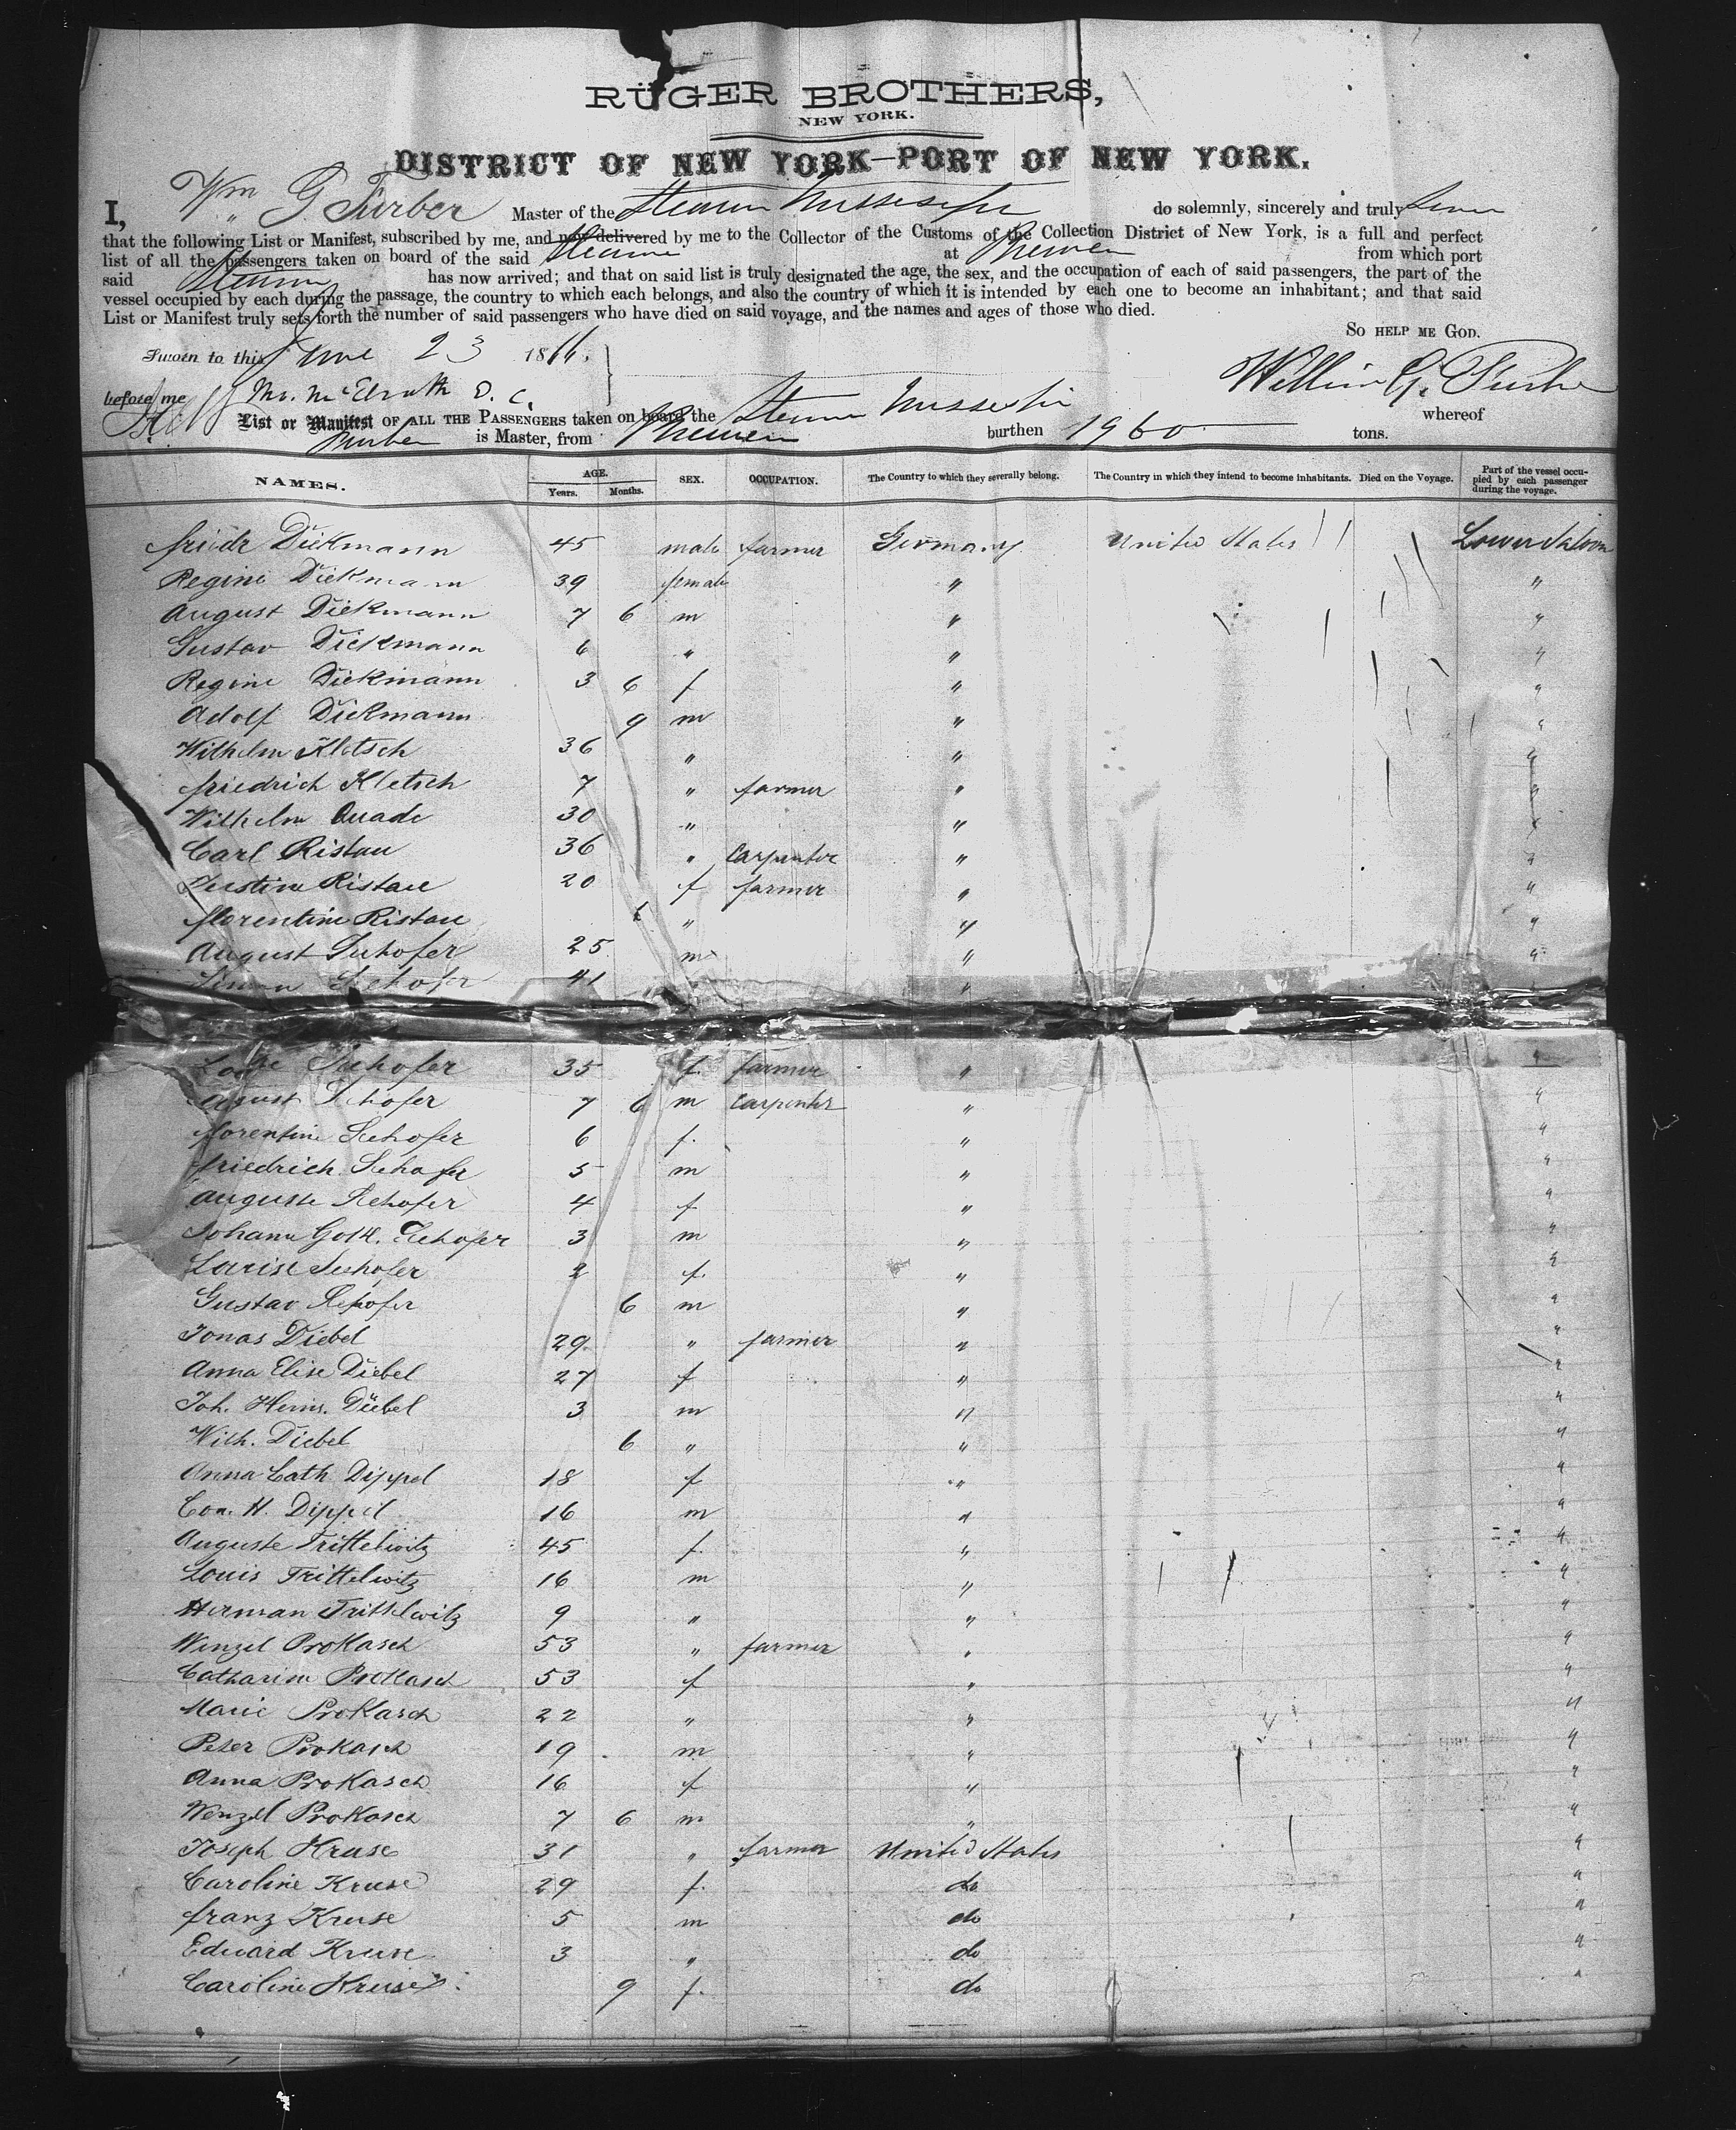 RÜGER BROTHERS,
NEW YORK.
DISTRICT OF NEW YORK—PORT OF NEW YORK.
I, Wm G Furber Master of the Steamer Mississippi do solemnly, sincerely and truly Swear
that the following List or Manifest, subscribed by me, and now delivered by me to the Collector of the Customs of the Collection District of New York, is a full and perfect
list of all the passengers taken on board of the said Steamer at Bremen from which port
said Steamer has now arrived; and that on said list is truly designated the age, the sex, and the occupation of each of said passengers, the part of the
vessel occupied by each during the passage, the country to which each belongs, and also the country of which it is intended by each one to become an inhabitant; and that said
List or Manifest truly sets forth the number of said passengers who have died on said voyage, and the names and ages of those who died.
SO HELP ME GOD.
Sworn to this June 23 1866.
before me Mr. McElrath D. C. William G. Furber
List or Manifest OF ALL THE PASSENGERS taken on board the Steamer Mississippi whereof
Furber is Master, from Bremen burthen 1960 tons.
NAMES. AGE. Years. Months. SEX. OCCUPATION. The Country to which they severally belong. The Country in which they intend to become inhabitants. Died on the Voyage. Part of the vessel occupied by each passenger during the voyage.
friedr Diekmann 45 male farmer Germany United States Lower Saloon
Regine Diekmann 39 female " "
August Diekmann 7 6 m " "
Gustav Diekmann 6 " " "
Regine Diekmann 3 6 f " "
Adolf Diekmann 9 m " "
Wilhelm Kletsch 36 " " "
friedrich Kletsch 7 " farmer " "
Wilhelm Quade 30 " " "
Carl Ristau 36 " Carpenter " "
Justine Ristau 20 f farmer " "
florentine Ristau " " "
August Seehofer 25 m " "
Seehofer 41 "
Seehofer 35 f. farmer " "
August Seehofer 7 6 m Carpenter " "
florentine Seehofer 6 f. " "
friedrich Seehofer 5 m " "
Auguste Seehofer 4 f " "
Johann Gottl. Seehofer 3 m " "
Louise Seehofer 2 f. " "
Gustav Seehofer 6 m " "
Jonas Diebel 29 " farmer " "
Anna Elise Diebel 27 f " "
Joh. Heinr. Diebel 3 m " "
Wilh. Diebel 6 " " "
Anna Cath Dippel 18 f " "
Con. H. Dippel 16 m " "
Auguste Trittelwitz 45 f. " "
Louis Trittelwitz 16 m " "
Herman Trittelwitz 9 " " "
Wenzel Prokasch 53 " farmer " "
Catharine Prokasch 53 f " "
Marie Prokasch 22 " " "
Peter Prokasch 19 m " "
Anna Prokasch 16 f " "
Wenzel Prokasch 7 6 m " "
Joseph Kruse 31 " farmer United States "
Caroline Kruse 29 f. do "
franz Kruse 5 m do "
Eduard Kruse 3 " do "
Caroline Kruse 9 f. do "